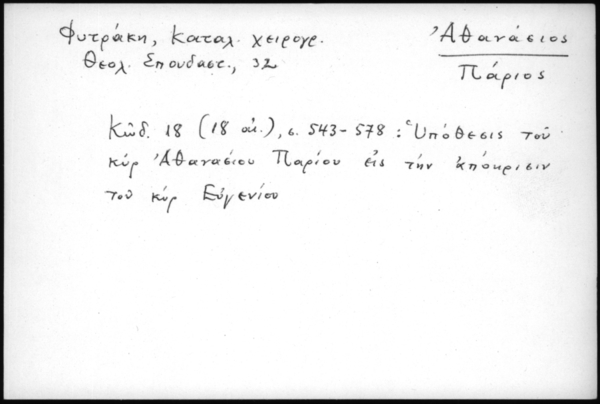 Φυτράκη, Καταλ. χειρογρ.
Θεολ. Σπουδαστ., 32
Ἀθανάσιος
Πάριος
Κῶδ. 18 (18 αἰ.), σ. 543-578: Ὑπόθεσις τοῦ
κύρ Ἀθανασίου Παρίου εἰς τήν ἀπόκρισιν
τοῦ κύρ Εὐγενίου